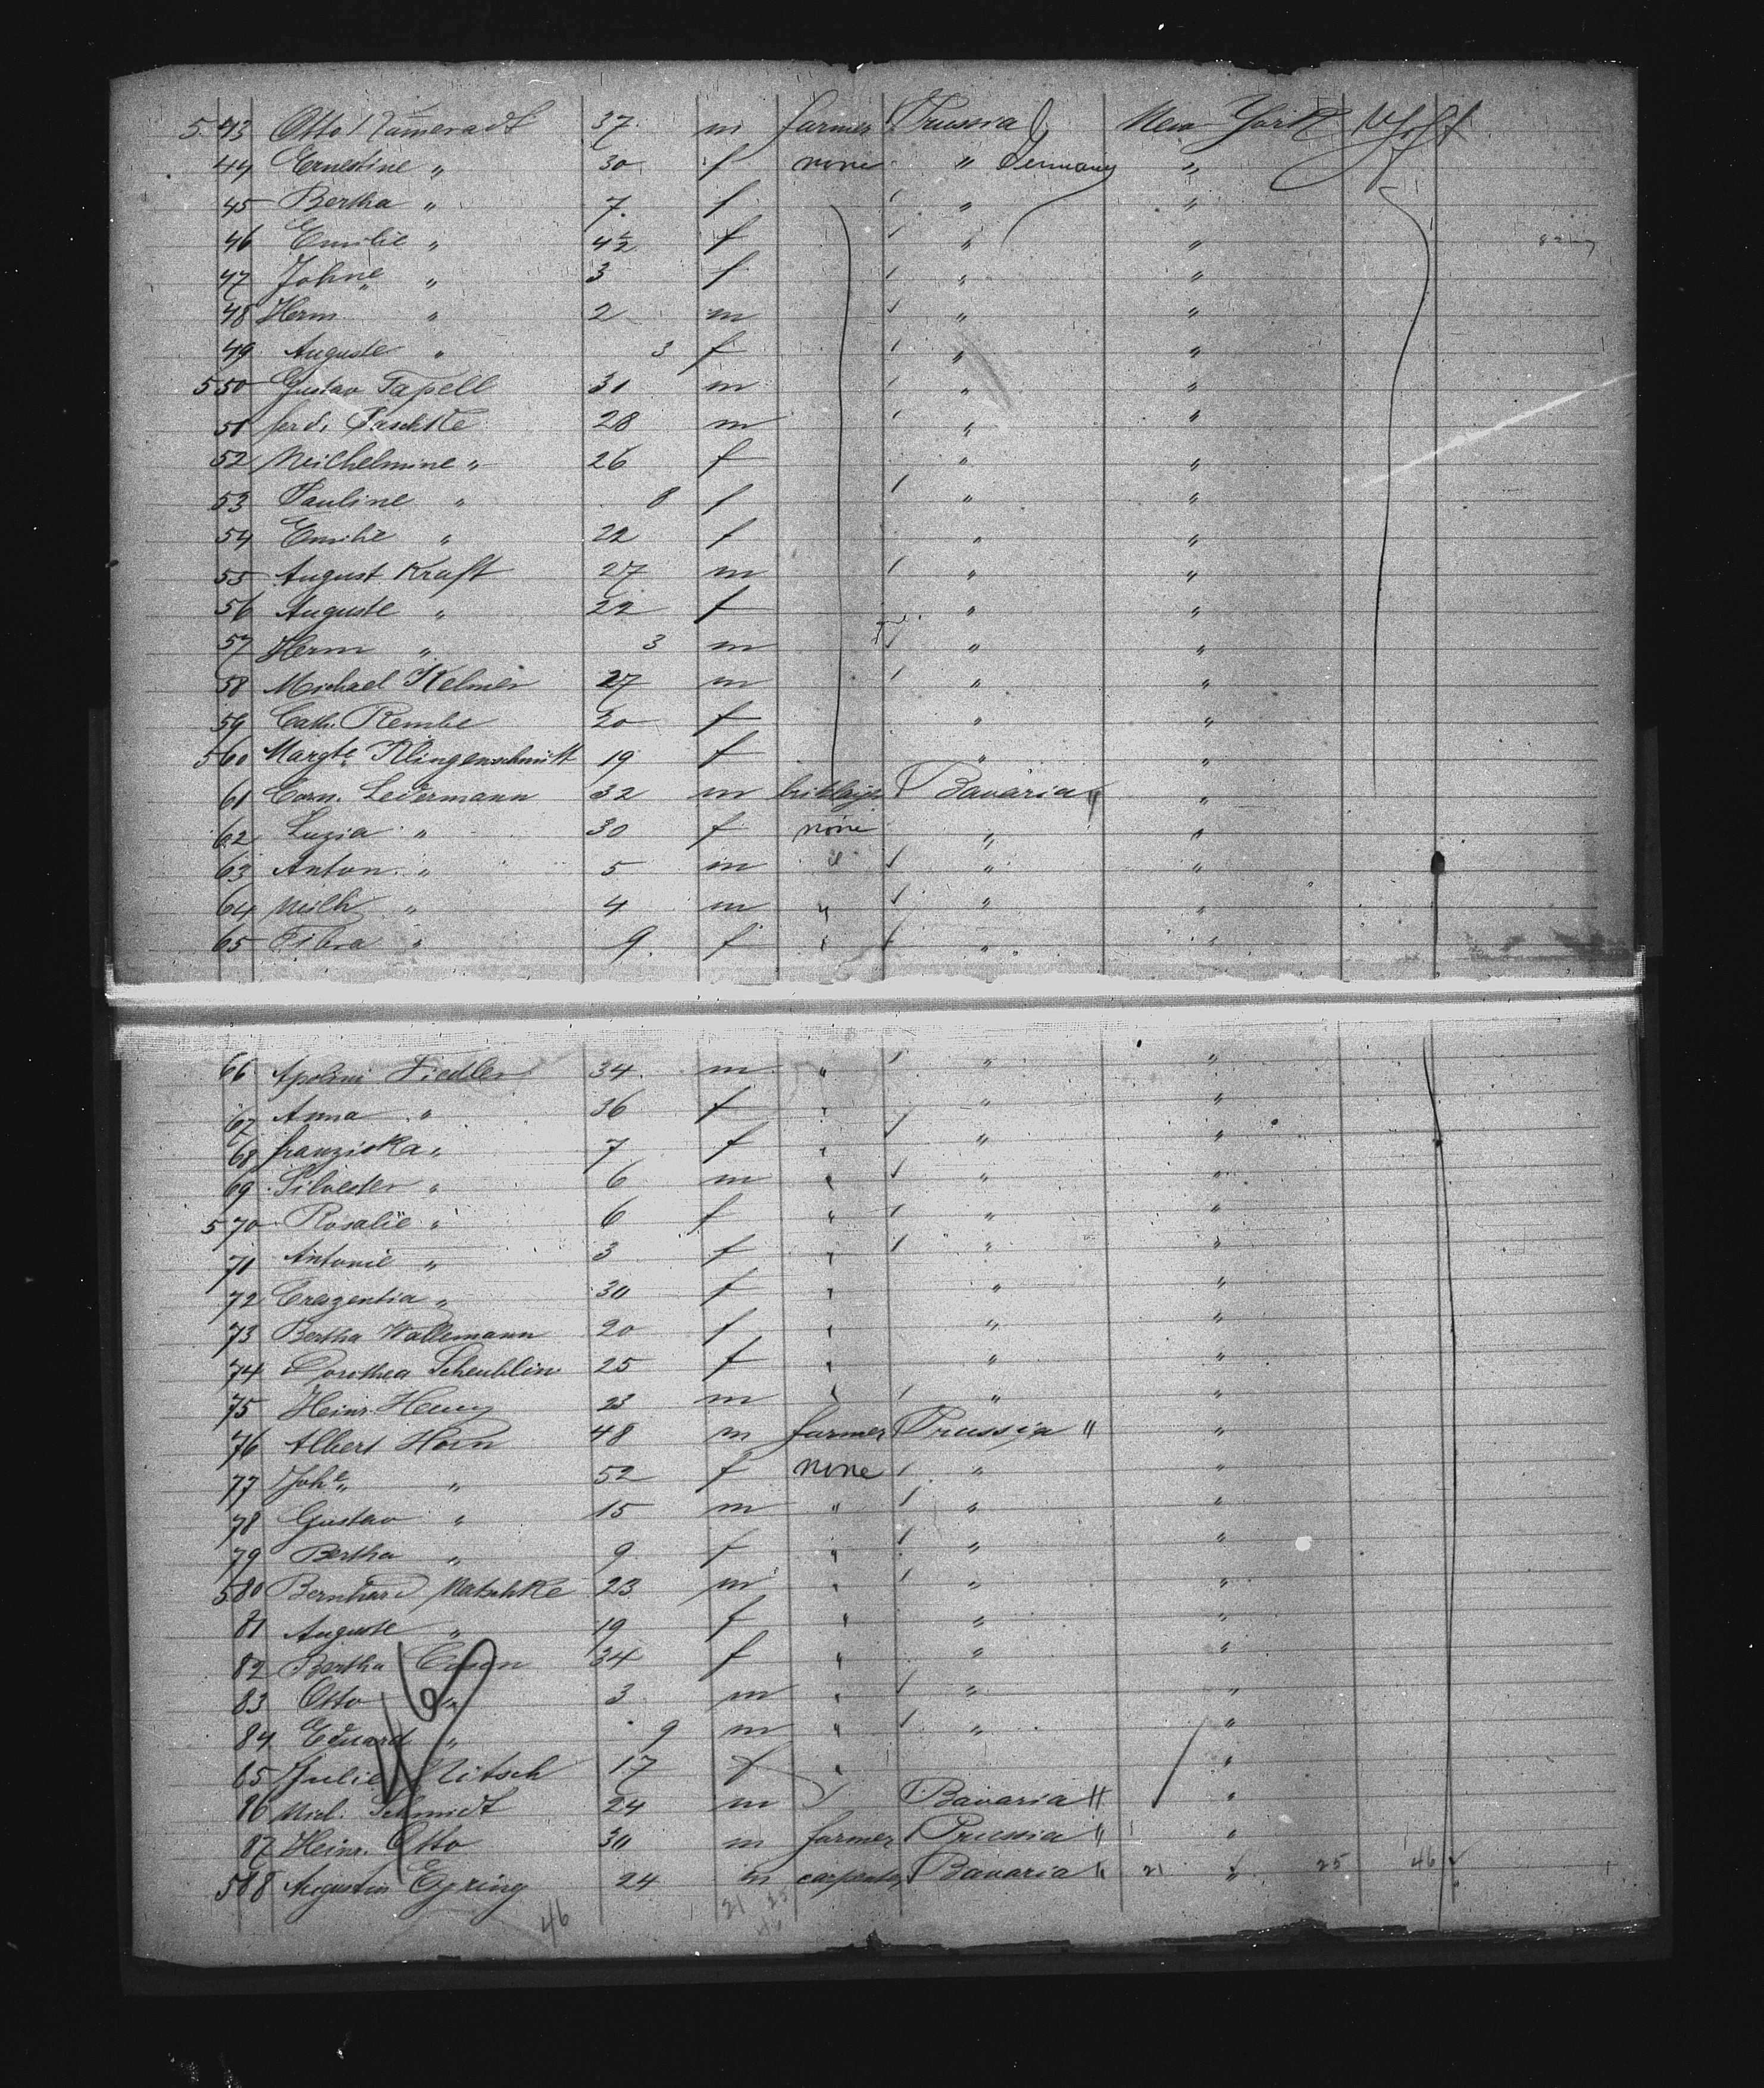 543 Otto Kumeradt 37 m farmer Prussia New York
44 Ernestine " 30 f none " Germany "
45 Bertha " 7 f " "
46 Emilie " 4½ f " "
47 Johne " 3 f " "
48 Herm " 2 m " "
49 Auguste " 3 f " "
550 Gustav Tapell 31 m " "
51 Ferd. Paschke 28 m " "
52 Wilhelmine " 26 f " "
53 Pauline " 8 f " "
54 Emilie " 22 f " "
55 August Kraft 27 m " "
56 Auguste " 22 f " "
57 Herm " 3 m " "
58 Michael Kelmer 27 m " "
59 Cath. Rembe 20 f " "
560 Margte Klingenschmitt 19 f " "
61 Corn. Ledermann 32 m Bavaria " "
62 Luzia " 30 f none " "
63 Anton " 5 m " " "
64 Wilh " 4 m " " "
65 " 9 f " " "
66 Fiedler 34 m " " "
67 Anna " 36 f " " "
68 Franziska " 7 f " " "
69 Silvester " 6 m " " "
570 Rosalie " 6 f " " "
71 Antonie " 3 f " " "
72 Crezentia " 30 f " " "
73 Bertha Wallemann 20 f " " "
74 Dorothea Scheublin 25 f " " "
75 Heinr. 23 m " " "
76 Albert Horn 48 m farmer Prussia " "
77 Johe " 52 f none " "
78 Gustav " 15 m " " "
79 Bertha " 9 f " " "
580 Bernhard Matschke 23 m " " "
81 Auguste " 19 f " " "
82 Bertha 34 f " " "
83 Otto " 3 m " " "
84 Eduard " 9 m " " "
85 Julie Nitsch 17 f " "
86 Mich. Schmidt 24 m Bavaria " "
87 Heinr. Otto 30 m farmer Prussia " "
588 Augustin 24 m carpenter Bavaria " 21 " 25 46
46 21 25
46